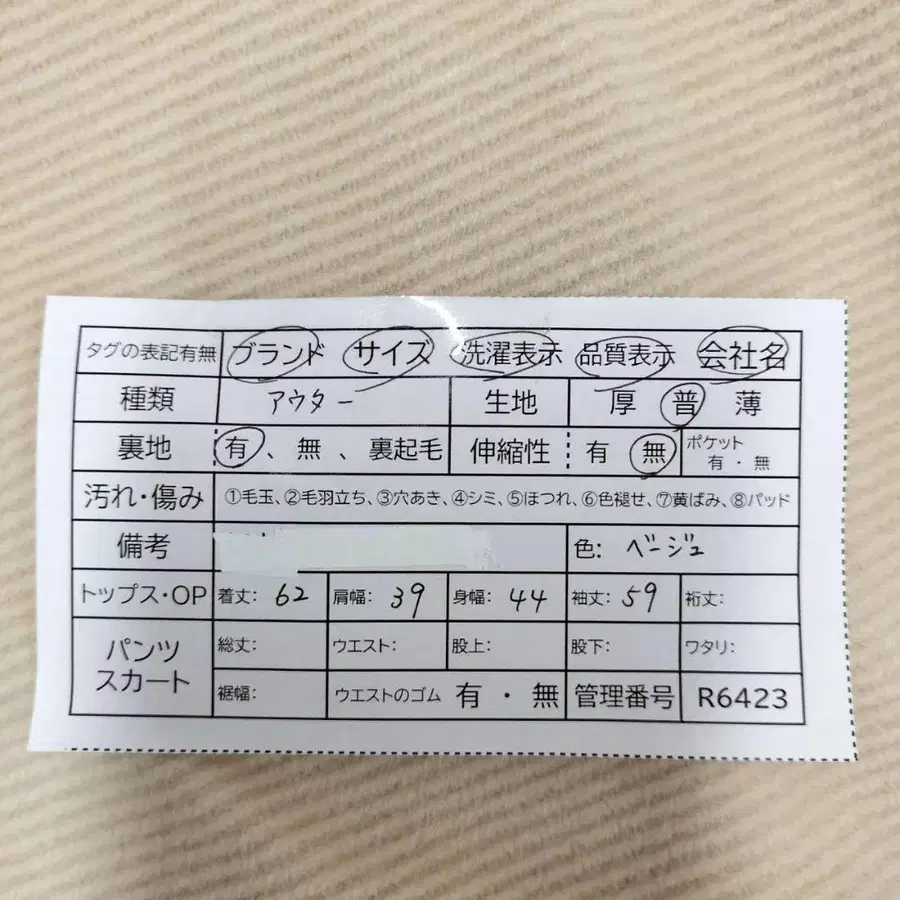 タグの表記有無 ブランド サイズ 洗濯表示 品質表示 会社名
種類 アウター 生地 厚 普 薄
裏地 有 、 無 、 裏起毛 伸縮性 有 無 ポケット 有 ・ 無
汚れ・傷み ①毛玉、②毛羽立ち、③穴あき、④シミ、⑤ほつれ、⑥色褪せ、⑦黄ばみ、⑧パッド
備考 色: ベージュ
トップス・OP 着丈: 62 肩幅: 39 身幅: 44 袖丈: 59 裄丈:
パンツ スカート 総丈: ウエスト: 股上: 股下: ワタリ:
裾幅: ウエストのゴム 有 ・ 無 管理番号 R6423